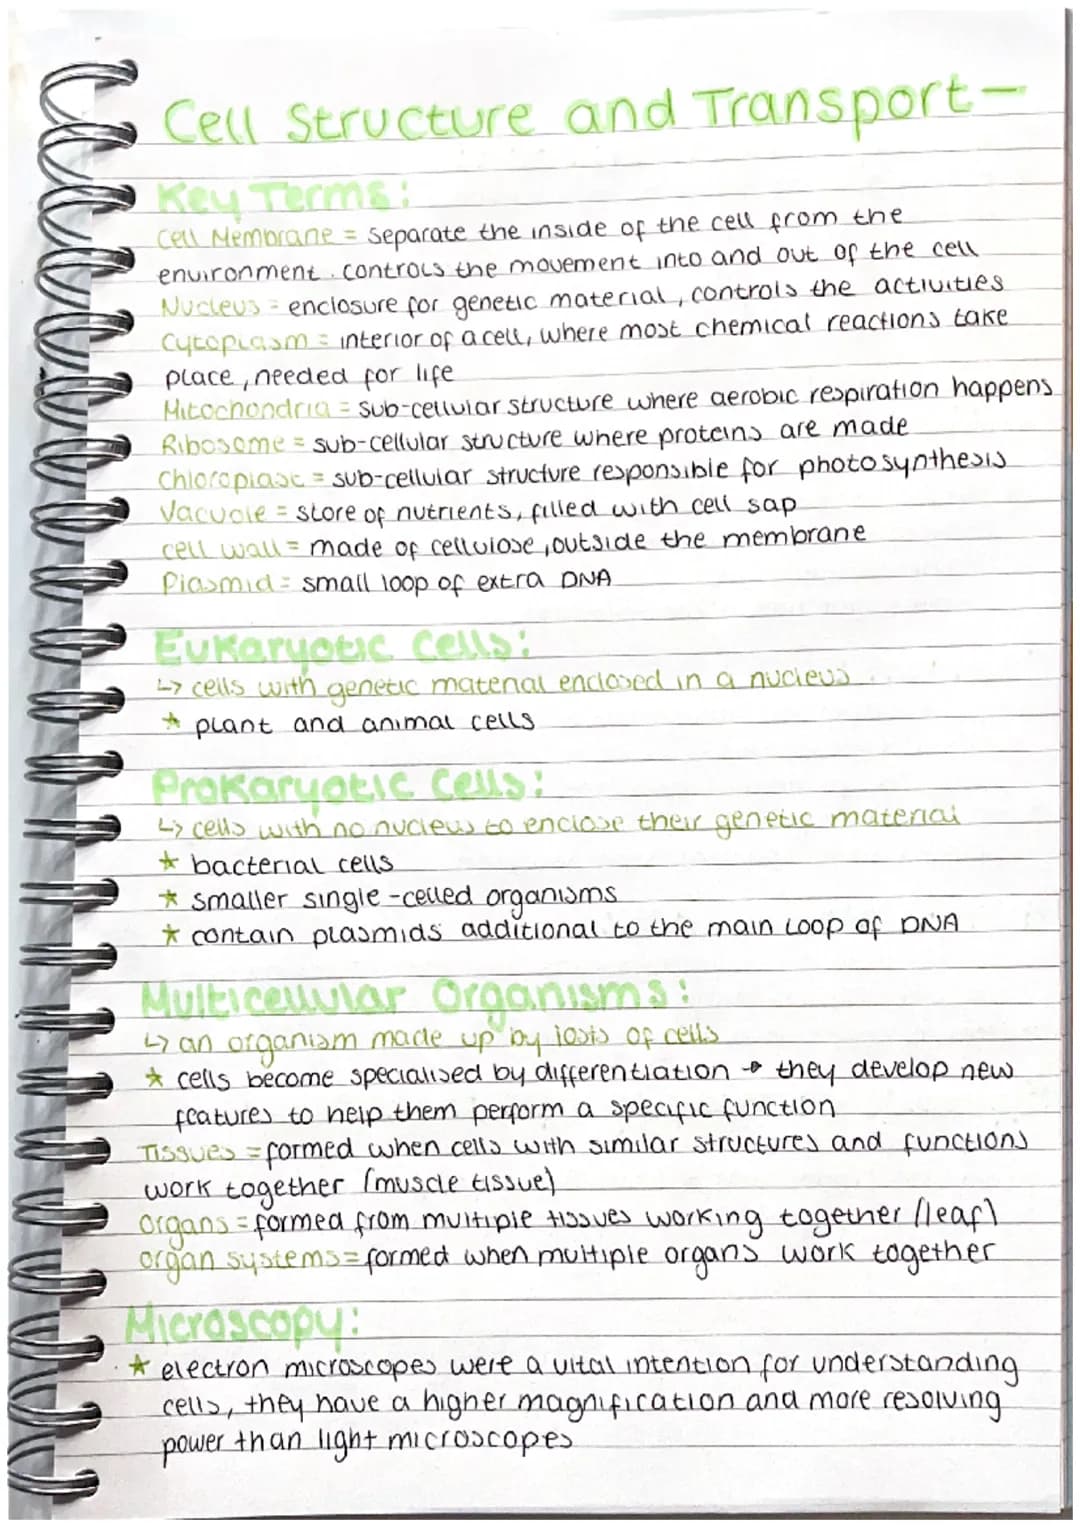 Cell Structure and Transport-
Key Terms:
Cell Membrane = Separate the inside of the cell from the
environment. controls the movement into and out of the cell
Nucleus = enclosure for genetic material, controls the activities
Cytoplasm = interior of a cell, where most chemical reactions take
place, needed for life
Mitochondria = sub-cellular structure where aerobic respiration happens
Ribosome = sub-cellular structure where proteins are made
Chloroplast = sub-cellular structure responsible for photosynthesis
Vacuole = store of nutrients, filled with cell sap
cell wall = made of cellulose, outside the membrane
Plasmid = small loop of extra DNA
Eukaryotic Cells:
↳ cells with genetic material enclosed in a nucleus
* plant and animal cells
Prokaryotic Cells:
↳ cells with no nucleus to enclose their genetic material
* bacterial cells
* smaller single-celled organisms
* contain plasmids additional to the main loop of DNA
Multicellular Organisms:
↳ an organism made up by losts of cells
* cells become specialised by differentiation → they develop new
features to help them perform a specific function
Tissues = formed when cells with similar structures and functions
work together (muscle tissue)
Organs = formed from multiple tissues working together (leaf)
organ systems = formed when multiple organs work together
Microscopy:
* electron microscopes were a vital intention for understanding
cells, they have a higher magnification and more resolving
power than light microscopes